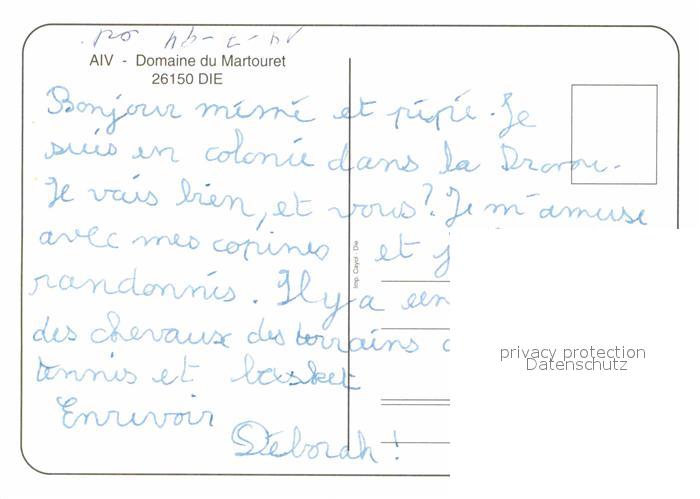 AIV - Domaine du Martouret
26150 DIE
Bonjour mémé et pépé. Je
suis en colonie dans la
Je vais bien, et vous? Je m'amuse
avec mes copines et j
randonnis. Il y a
des chevaux des terrains
tennis et basket
Enrevoir
Déborah!
Imp. Cayol - Die
privacy protection
Datenschutz